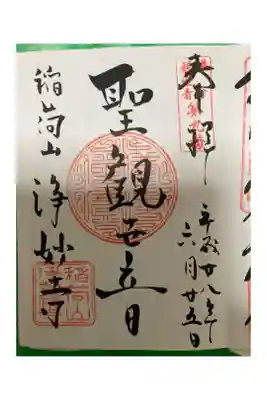 奉拝
平成廿八年
六月廿五日
聖観世音
稲荷山 浄妙寺